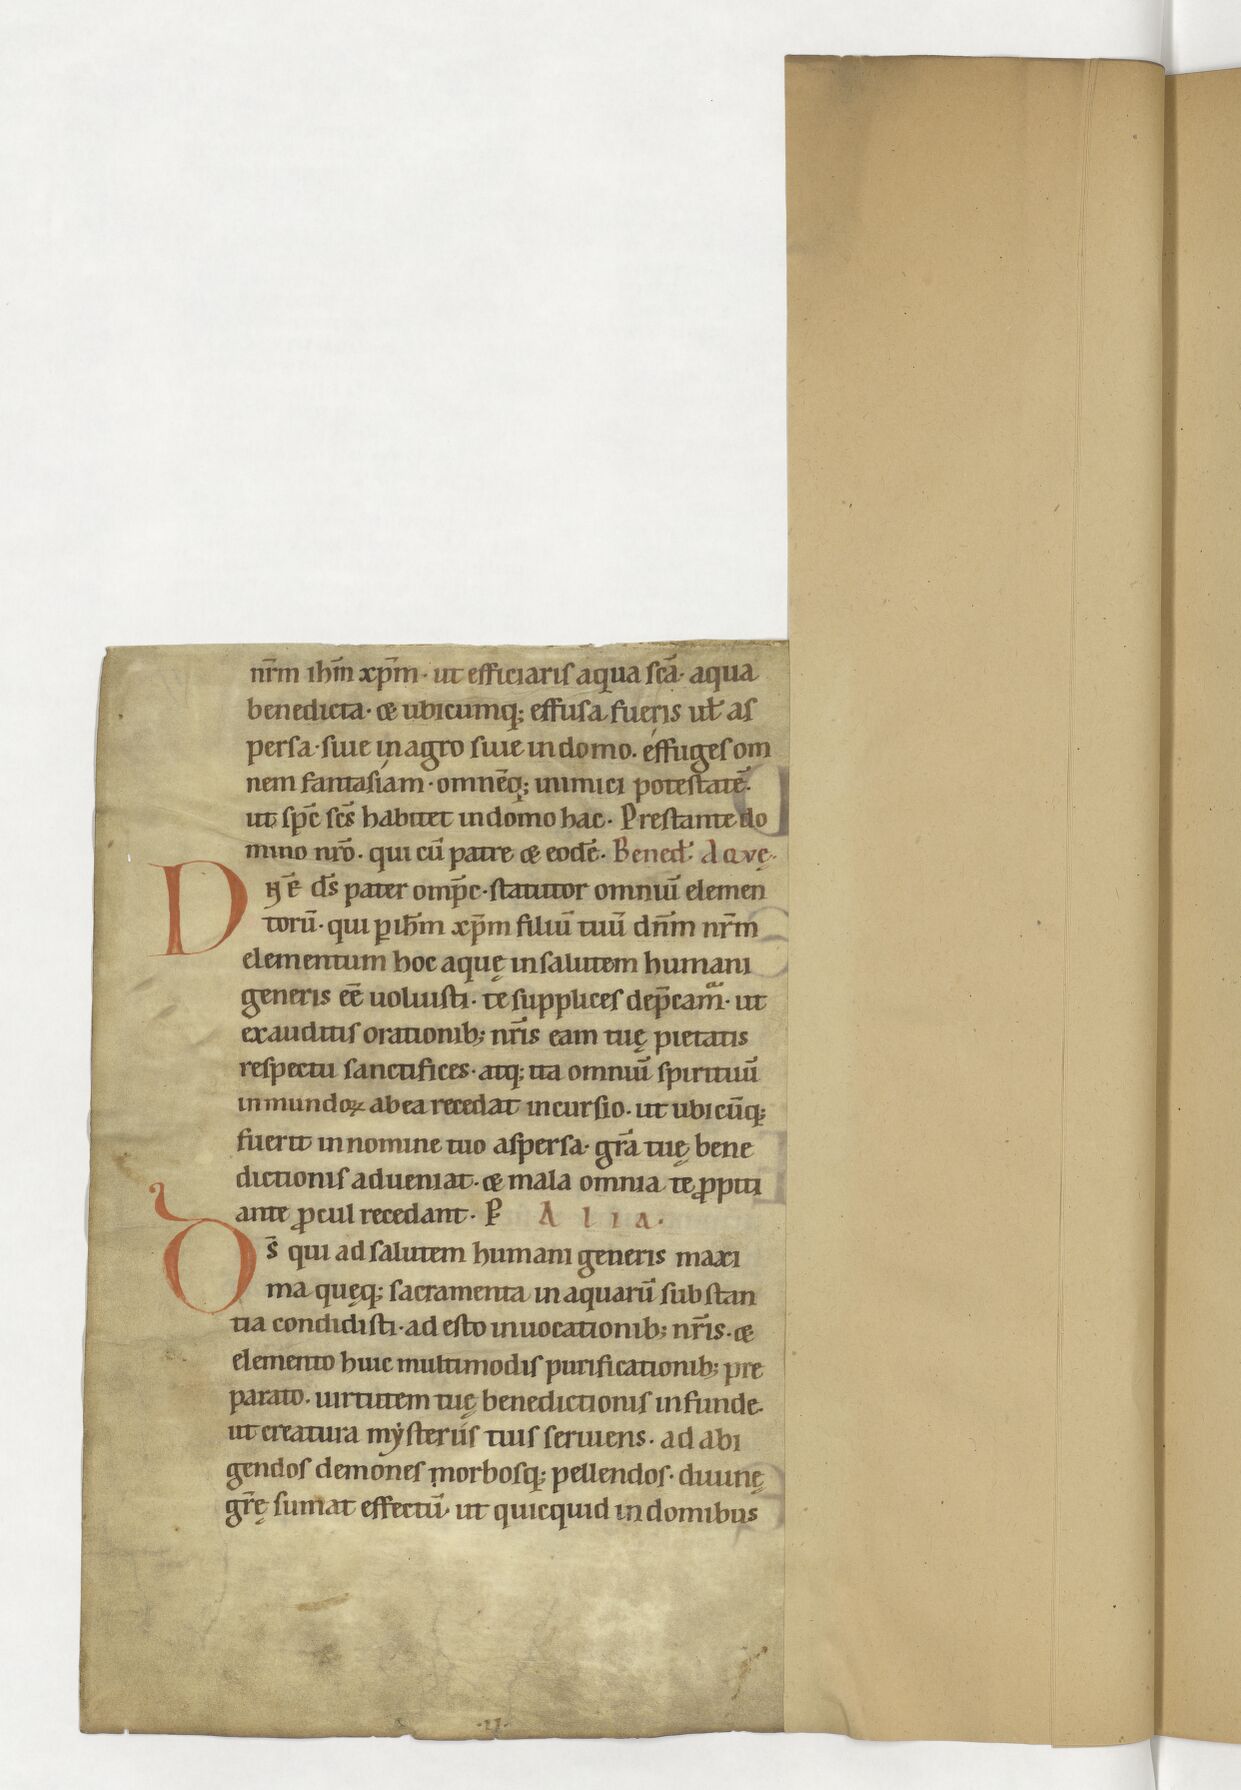 nr̄m ıhm̄ xp̄m · ut efficiaris aqua scā · aqua
benedicta · & ubicumq; effusa fueris ut̄ as
persa · siue in agro siue in domo . éffuges om
nem fantasíam · omnēq; inimici potestatē ·
ut sp̄c scs̄ habitet in domo hac · Prestante do
mino nrō . qui cū patre & eodē . Bened̄ · Aqvę ·
Dn̄e ds̄ pater omp̄c · statutor omniū elemen
torū · qui ꝑ ih̄m xp̄m filiū tuū dn̄m nr̄m
elementum hoc aquę in salutem humani
generis eē uoluisti · te supplices dep̄camᷓ · ut
exauditis orationib; nr̄is eam tuę pietatis
respectu sanctifices · atq; ita omniū spirituū
inmundoꝝ ab ea recedat incursio . ut ubicūq;
fuerit in nomine tuo aspersa · gr̄a tuę bene
dictionis adueniat · & mala omnia te ꝓpiti
ante ꝓcul recedant · P̄ Alia .
Ds̄ qui ad salutem humani generis maxi
ma quęq; sacramenta in aquarū substan
tia condidisti · ad esto inuocationib; nr̄is · &
elemento huic multimodis purificationib; pre
parato . uirtutem tuę benedictionis infunde ·
ut creatura mẏsteriis tuis seruiens · ad abi
gendos demones morbosq; pellendos · diuinę
gr̄ę sumat effectū · ut quicquid in domibus
·II·